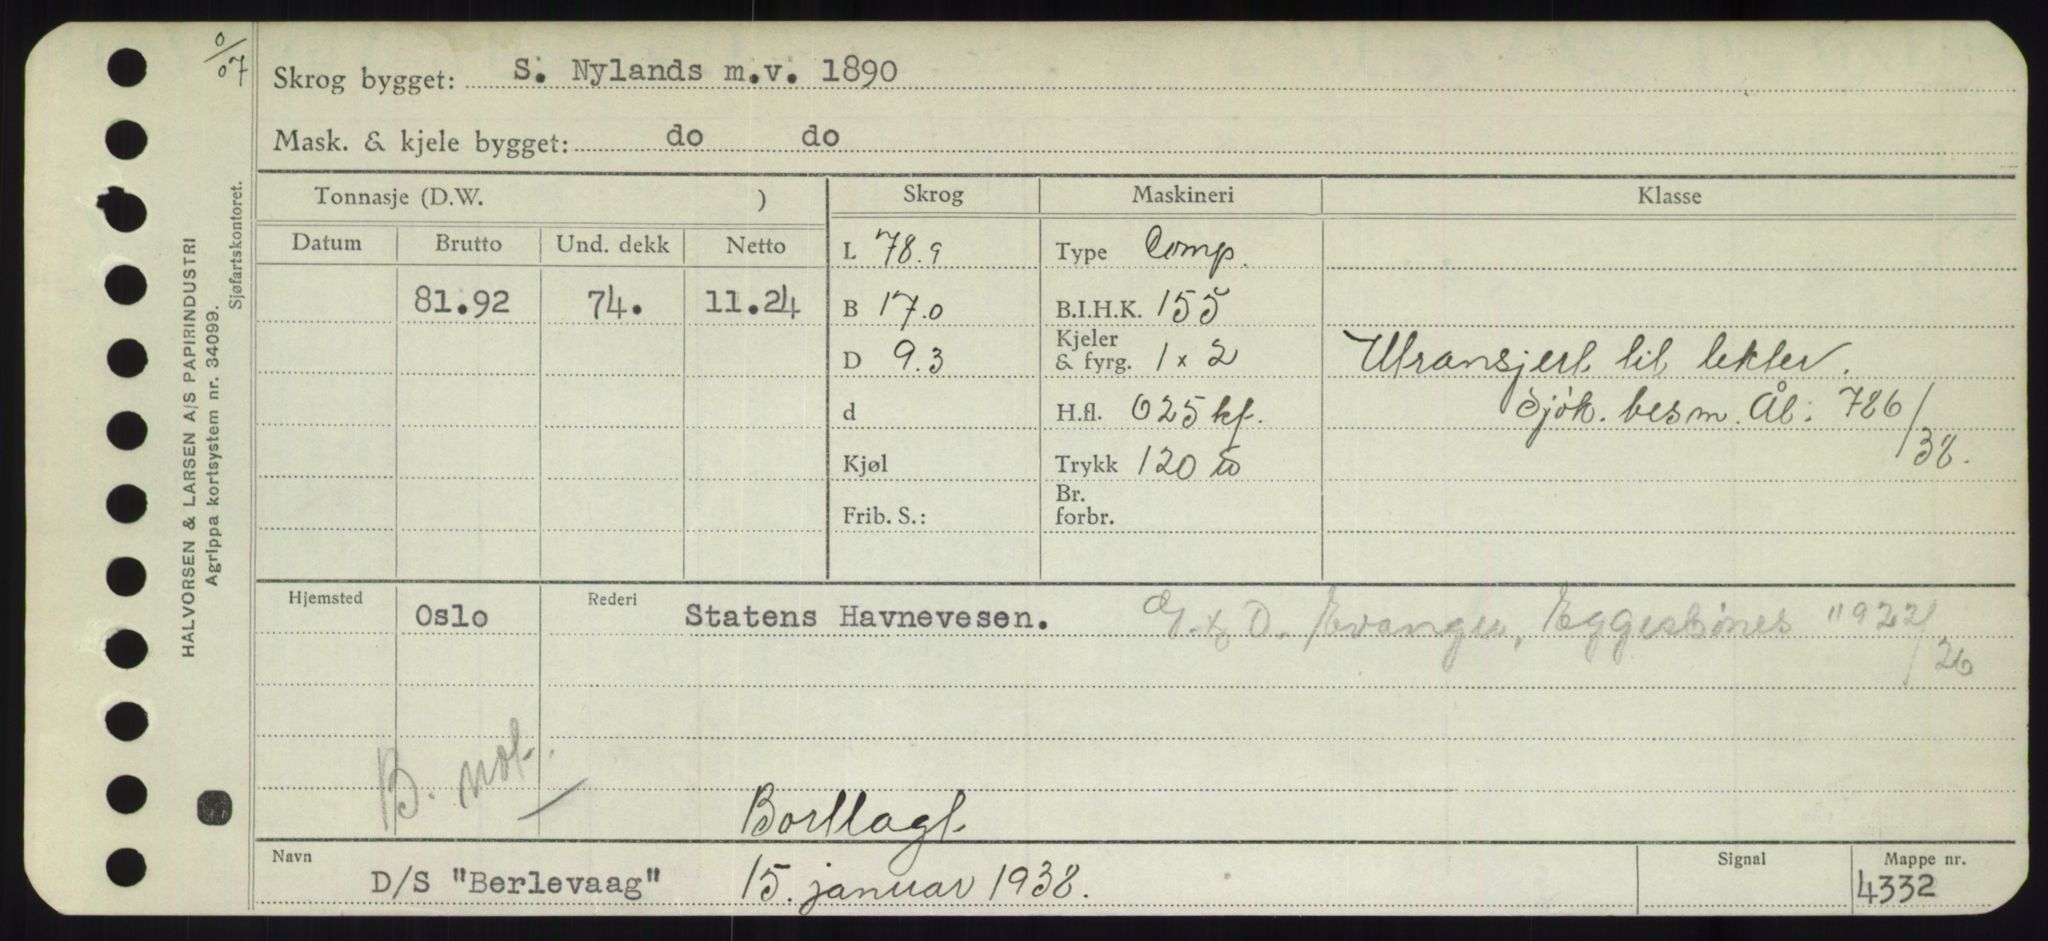 0/07
Skrog bygget: S. Nylands m.v. 1890
Mask. & kjele bygget: do do
Tonnasje (D.W. )
Skrog
Maskineri
Klasse
Datum Brutto Und. dekk Netto
L 78.9
Type Comp.
81.92 74. 11.24
B 17.0
B.I.H.K. 155
D 9.3
Kjeler
& fyrg. 1 x 2
Utransjert til lekter.
d
H.fl. 625 kf.
Sjøk. besm. Ål. 786/38.
Kjøl
Trykk 120 lb
Frib. S.:
Br.
forbr.
Hjemsted Oslo
Rederi Statens Havnevesen.
& D. Evanger, Eggesbönes "922/26
B. not.
Borttagt
Navn
D/S "Berlevaag" 15. januar 1938.
Signal
Mappe nr.
4332
HALVORSEN & LARSEN A/S PAPIRINDUSTRI
Agrippa kortsystem nr. 34099.
Sjøfartskontoret.